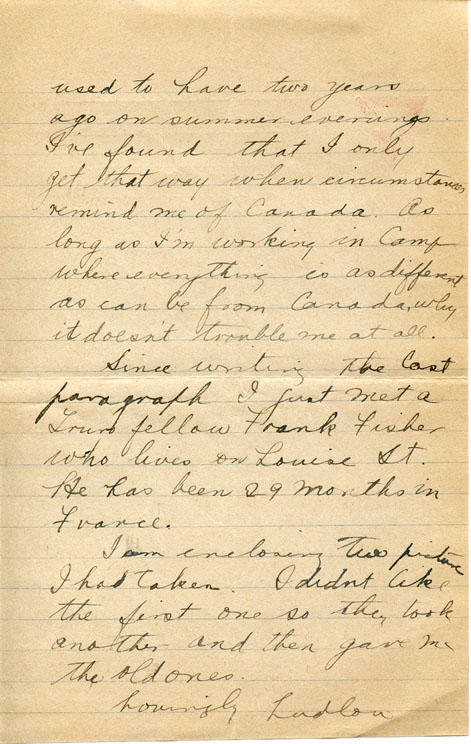 used to have two years
ago on summer evenings.
I've found that I only
get that way when circumstances
remind me of Canada. As
long as I'm working in Camp
where everything is as different
as can be from Canada, why
it doesn't trouble me at all.
Since writing the last
paragraph I just met a
Truro fellow Frank Fisher
who lives on Louise St.
He has been 29 months in
France.
I am enclosing two picture
I had taken. I didnt like
the first one so they took
another and then gave me
the old ones.
Lovingly Ludlow